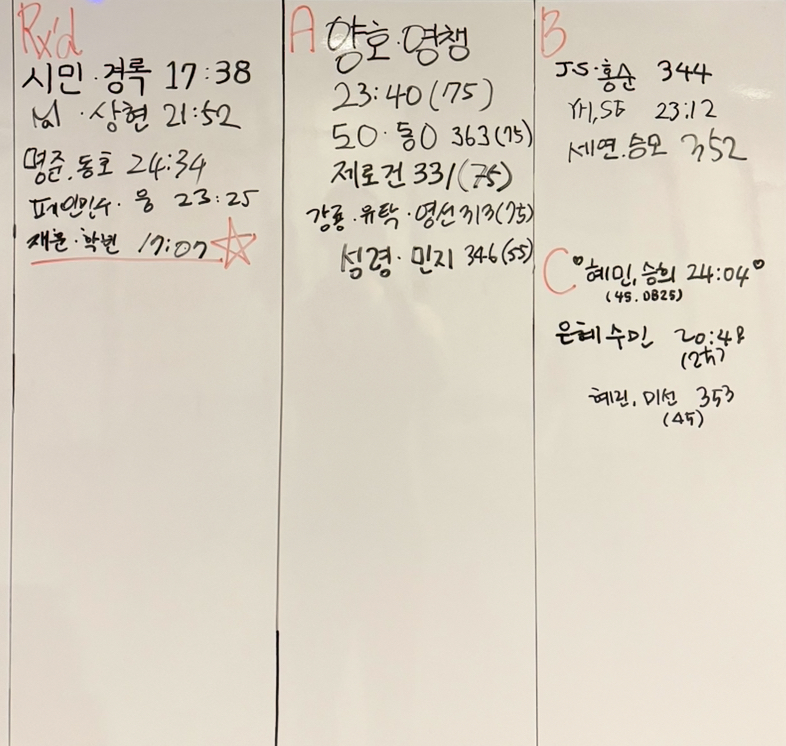 Rx'd
시민·경록 17:38
·상현 21:52
명준.동호 24:34
페인민수·웅 23:25
재훈·학년 17:07
A
양호·영챙
23:40(75)
도O·동O 363(75)
제로건 331(75)
강룡·유탁·영선 313(75)
성경·민지 346(55)
B
J.S·홍순 344
YH,SE 23:12
세연.승모 352
C
혜민,승희 24:04
(45.DB25)
은혜수민 20:48
(25)
혜린,미선 353
(45)